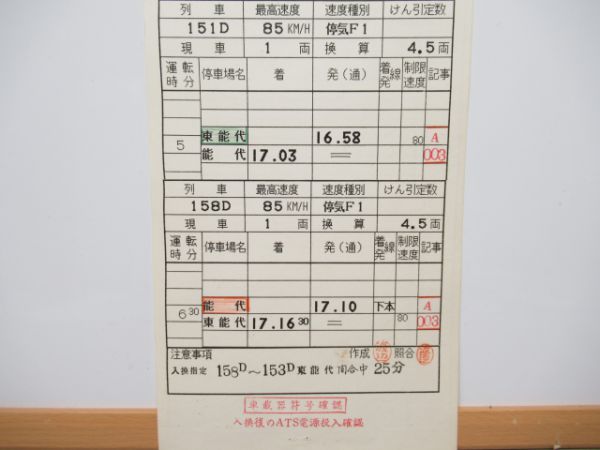 列車 最高速度 速度種別 けん引定数
151D 85KM/H 停気F1
現車 1両 換算 4.5両
運転時分 停車場名 着 発(通) 着発線 制限速度 記事
東能代 16.58 80 A
5
能代 17.03 = 003
列車 最高速度 速度種別 けん引定数
158D 85KM/H 停気F1
現車 1両 換算 4.5両
運転時分 停車場名 着 発(通) 着発線 制限速度 記事
能代 17.10 下本 A
6 30
東能代 17.16 30 = 80 003
注意事項 作成 照合
入換指定 158D~153D東能代間合中25分
車載器符号確認
入換後のATS電源投入確認